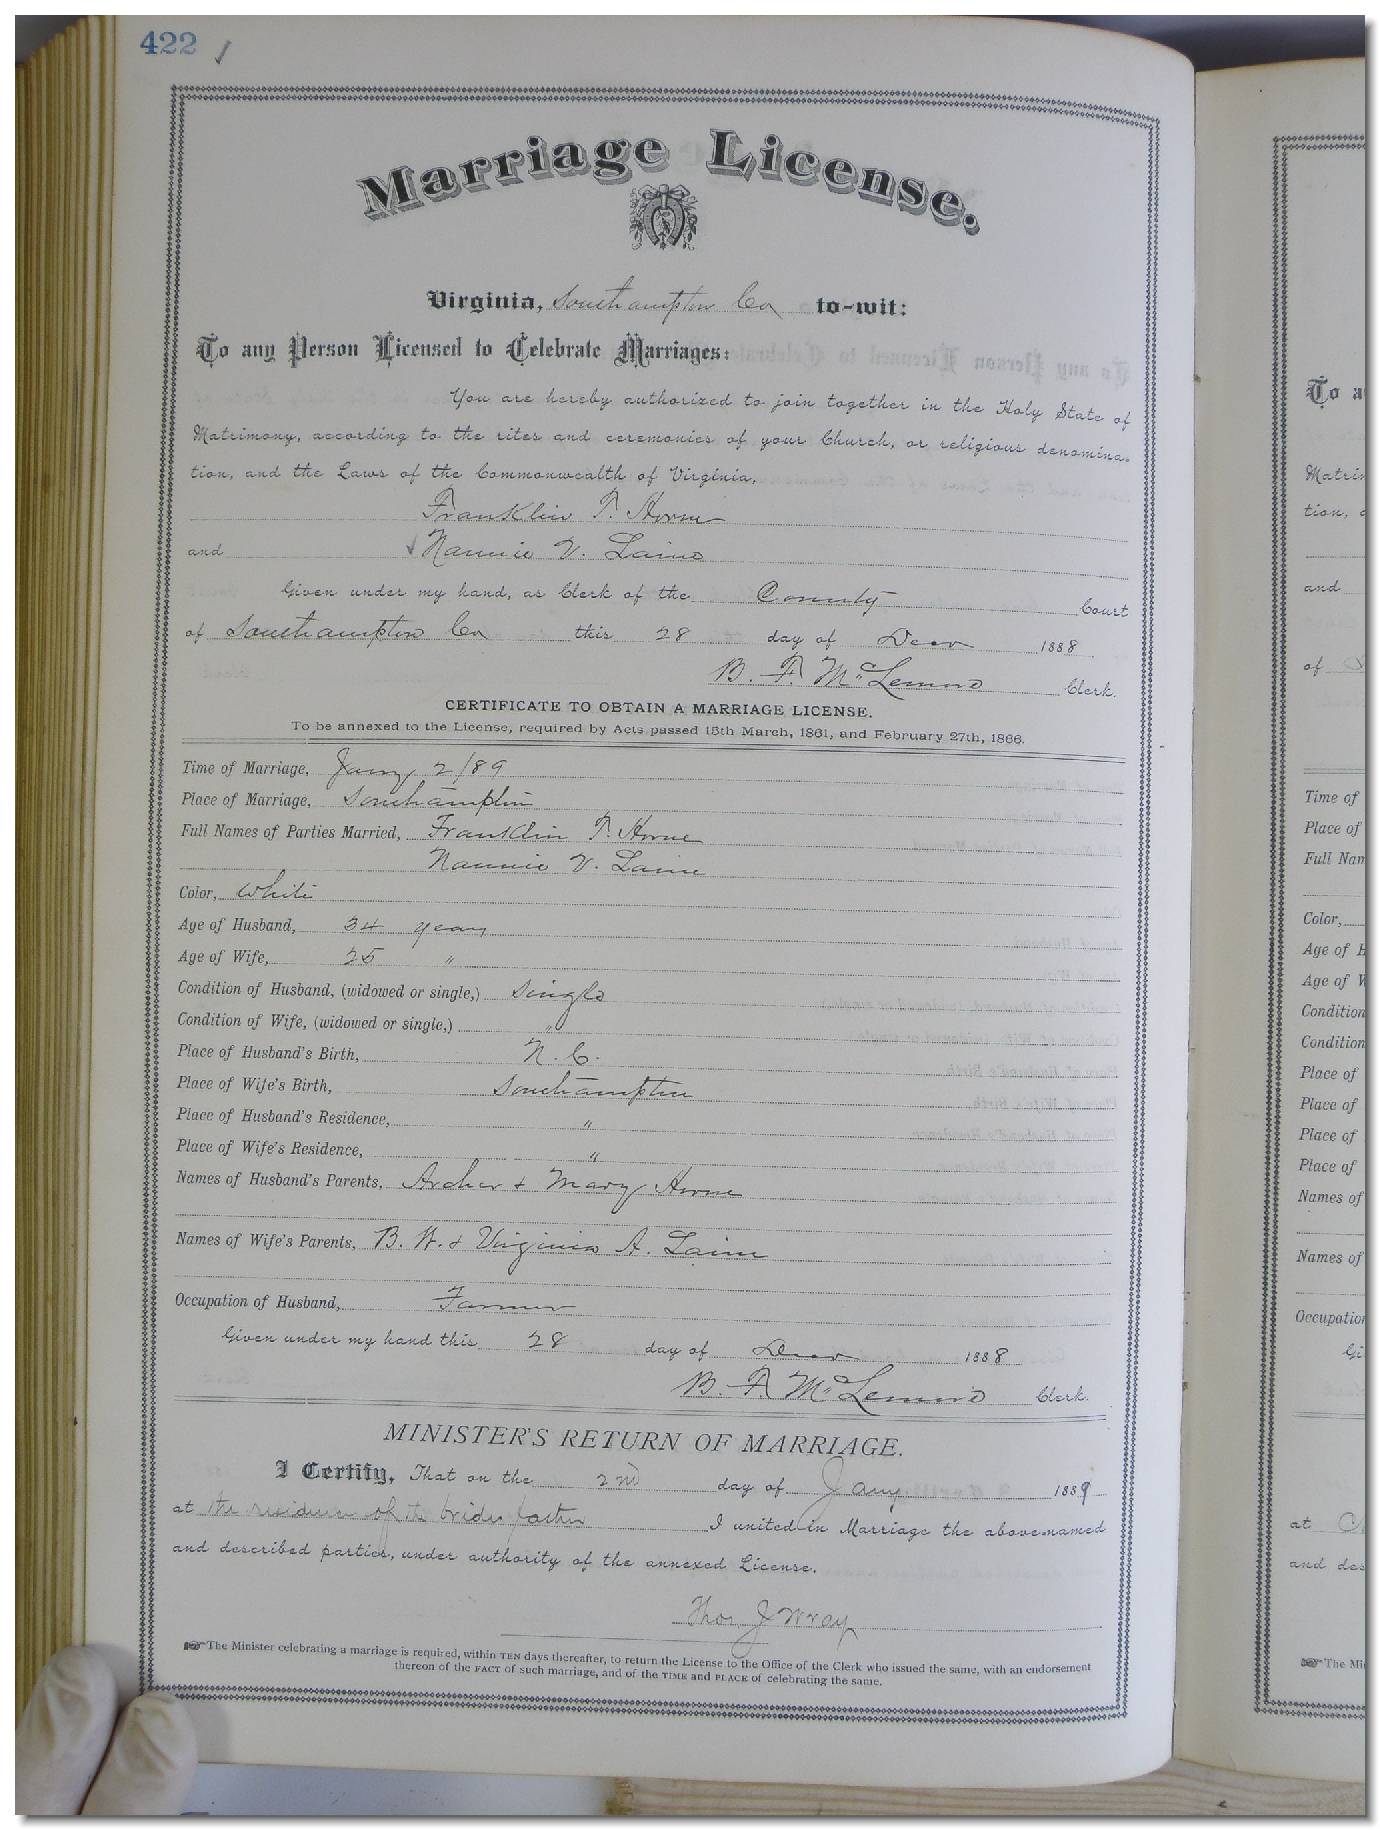 422
Marriage License.
Virginia, Southampton Co to-wit:
To any Person Licensed to Celebrate Marriages:
You are hereby authorized to join together in the Holy State of
Matrimony, according to the rites and ceremonies of your Church, or religious denomina-
tion, and the Laws of the Commonwealth of Virginia,
Franklin T. Horne
and Nannie V. Laine
Given under my hand, as Clerk of the County Court
of Southampton Co this 28 day of Decr 1888
B. F. McLemore Clerk.
CERTIFICATE TO OBTAIN A MARRIAGE LICENSE.
To be annexed to the License, required by Acts passed 15th March, 1861, and February 27th, 1866.
Time of Marriage, Jany 2/89
Place of Marriage, Southampton
Full Names of Parties Married, Franklin T. Horne
Nannie V. Laine
Color, White
Age of Husband, 34 years
Age of Wife, 25 "
Condition of Husband, (widowed or single,) Single
Condition of Wife, (widowed or single,) "
Place of Husband's Birth, N. C.
Place of Wife's Birth, Southampton
Place of Husband's Residence, "
Place of Wife's Residence, "
Names of Husband's Parents, Archer & Mary Horne
Names of Wife's Parents, B. W. & Virginia A. Laine
Occupation of Husband, Farmer
Given under my hand this 28 day of Decr 1888
B. F. McLemore Clerk.
MINISTER'S RETURN OF MARRIAGE.
I Certify, That on the 2nd day of Jany 1889
at the residence of the brides father I united in Marriage the above-named
and described parties, under authority of the annexed License.
Thos J Wray
The Minister celebrating a marriage is required, within TEN days thereafter, to return the License to the Office of the Clerk who issued the same, with an endorsement
thereon of the FACT of such marriage, and of the TIME and PLACE of celebrating the same.
To a
Matrim
tion,
and
of
Time of
Place of
Full Nam
Color,
Age of H
Age of W
Condition
Condition
Place of
Place of
Place of
Place of
Names of
Names of
Occupation
Gi
at
and des
The Mi